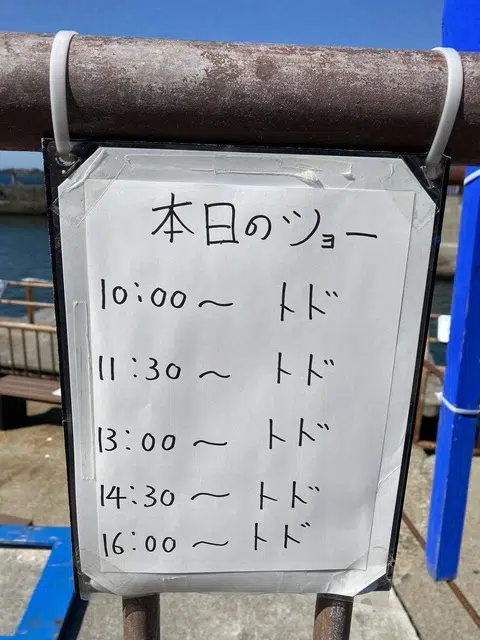 本日のショー
10:00〜 トド
11:30〜 トド
13:00〜 トド
14:30〜 トド
16:00〜 トド